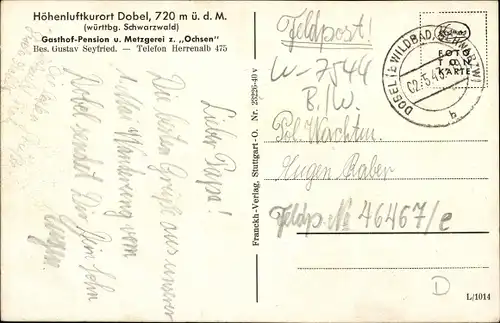 Höhenluftkurort Dobel, 720 m ü. d. M.
(württbg. Schwarzwald)
Gasthof-Pension u. Metzgerei z. „Ochsen"
Bes. Gustav Seyfried. — Telefon Herrenalb 475
Lieber Papa!
Die besten Grüße aus unserer
Wanderung vom
Dobel sendet Dir Dein Sohn
Eugen.
Franckh-Verlag, Stuttgart-O. Nr. 23226-40 v
Feldpost!
DOBEL (WILDBAD
b
FOTO
TON
KARTE
W-7544
B./W.
Pol. Wachtm.
Eugen Raber
Feldp. No 46467/e
D
L/1014